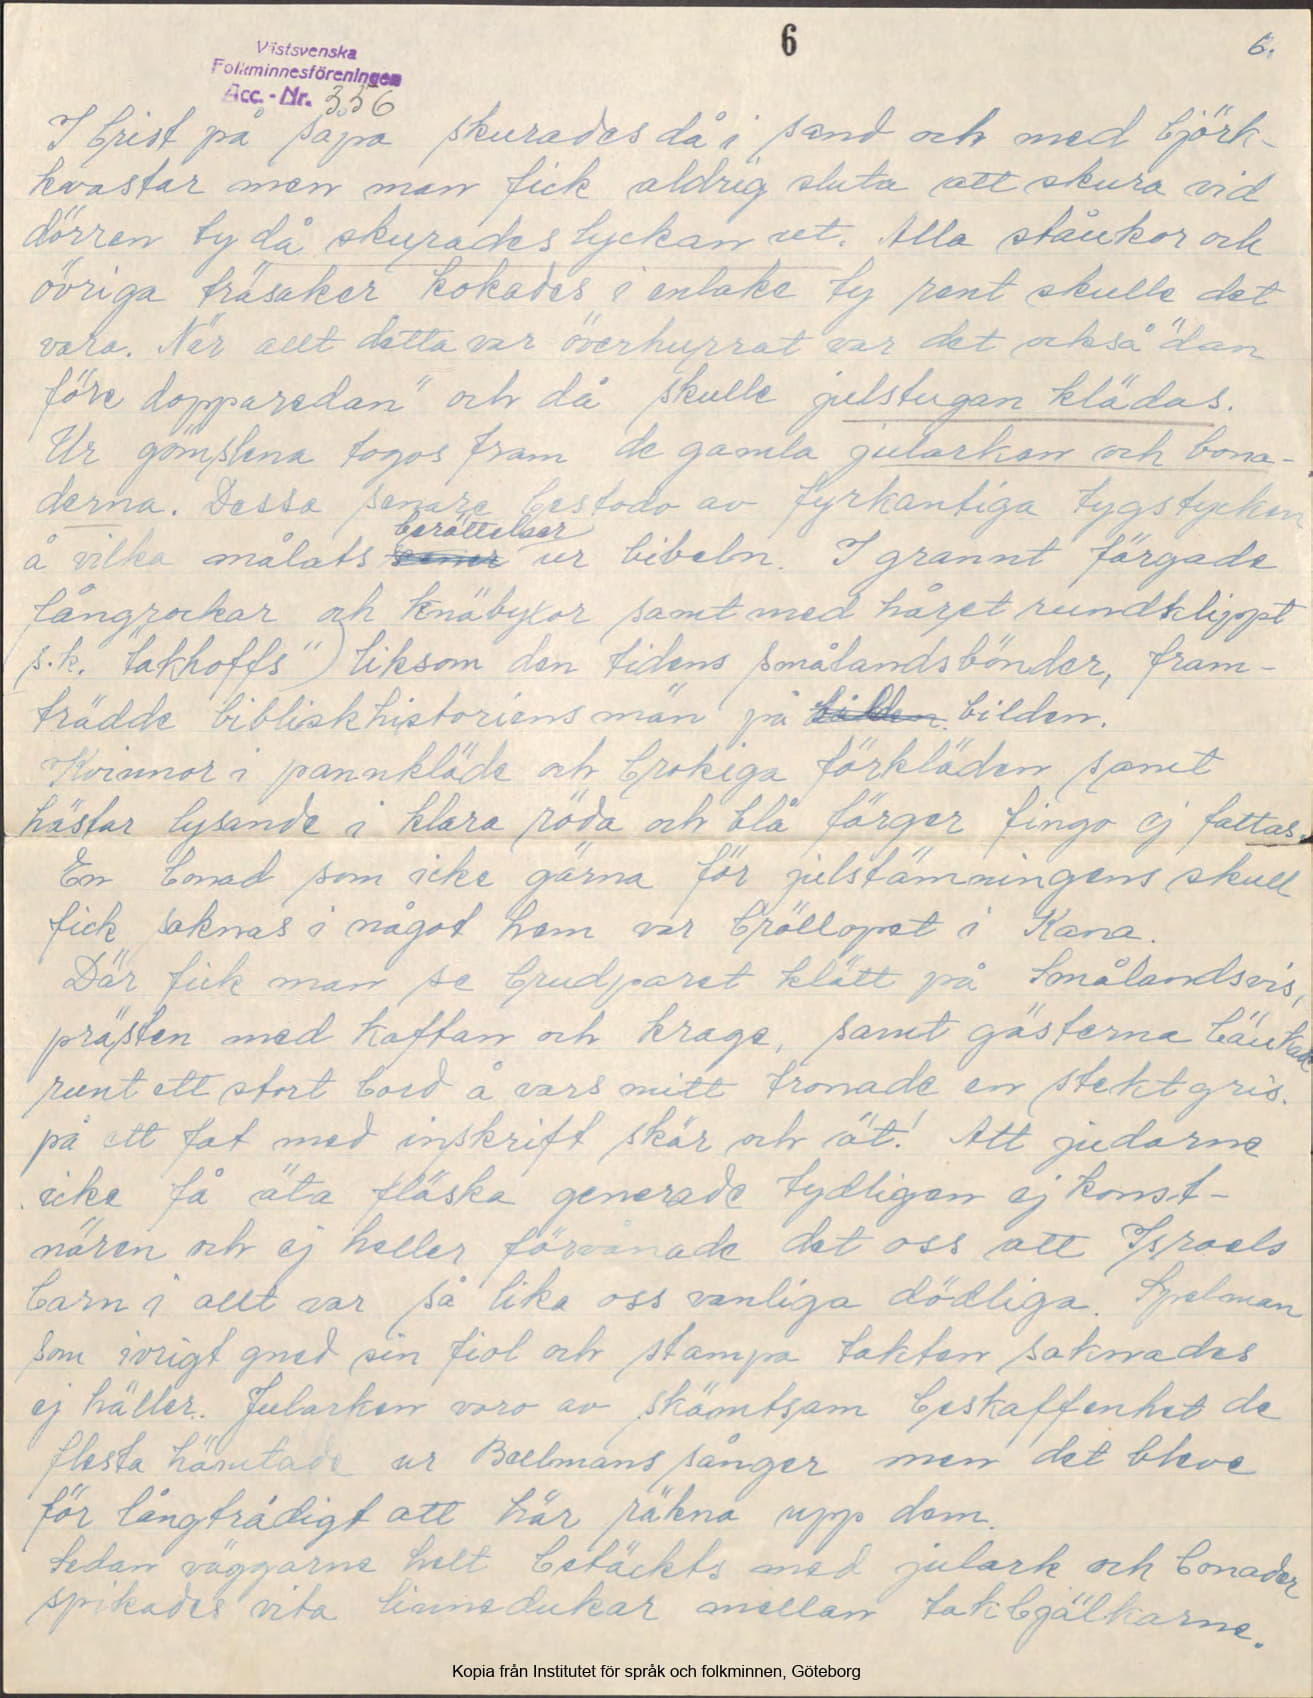 6
6.
Västsvenska
Folkminnesföreningen
Acc. - Nr. 336
I brist på såpa skurades då i sand och med björk-
kvastar men man fick aldrig sluta att skura vid
dörren ty då skurades lyckan ut. Alla ståukor och
övriga träsaker kokades i enlake ty rent skulle det
vara. När allt detta var överhurrat var det också "dan
före dopparedan" och då skulle julstugan klädas.
Ur gömslena togos fram de gamla jularken och bona-
derna. Dessa senare bestodo av fyrkantiga tygstycken
berättelser
å vilka målats ur bibeln. I grannt färgade
långrockar och knäbyxor samt med håret rundklippt
s.k. "takhoffs") liksom den tidens smålandsbönder, fram-
trädde bibliskhistoriens män på bilden.
Kvinnor i pannkläde och brokiga förkläden samt
hästar lysande i klara röda och blå färger fingo ej fattas.
En bonad som icke gärna för julstämningens skull
fick saknas i något hem var bröllopet i Kana.
Där fick man se brudparet klätt på Smålandsvis,
prästen med kaftan och krage, samt gästerna bänkade
runt ett stort bord å vars mitt tronade en stekt gris.
på ett fat med inskrift skär och ät! Att judarne
icke få äta fläska generade tydligen ej konst-
nären och ej heller förvånade det oss att Israels
barn i allt var så lika oss vanliga dödliga. Spelman
som ivrigt gned sin fiol och stampa takten saknades
ej häller. Jularken voro av skämtsam beskaffenhet de
flesta hämtade ur Bellmans sånger men det bleve
för långtrådigt att här räkna upp dem.
Sedan väggarne helt betäckts med julark och bonader
spikades vita linnedukar mellan takbjälkarne.
Kopia från Institutet för språk och folkminnen, Göteborg